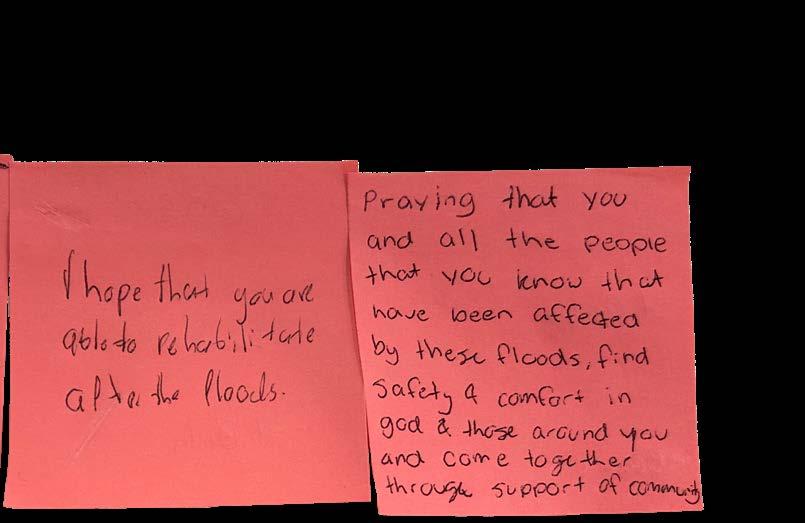 I hope that you are
able to rehabilitate
after the floods.
Praying that you
and all the people
that you know that
have been affected
by these floods, find
safety & comfort in
god & those around you
and come together
through support of community